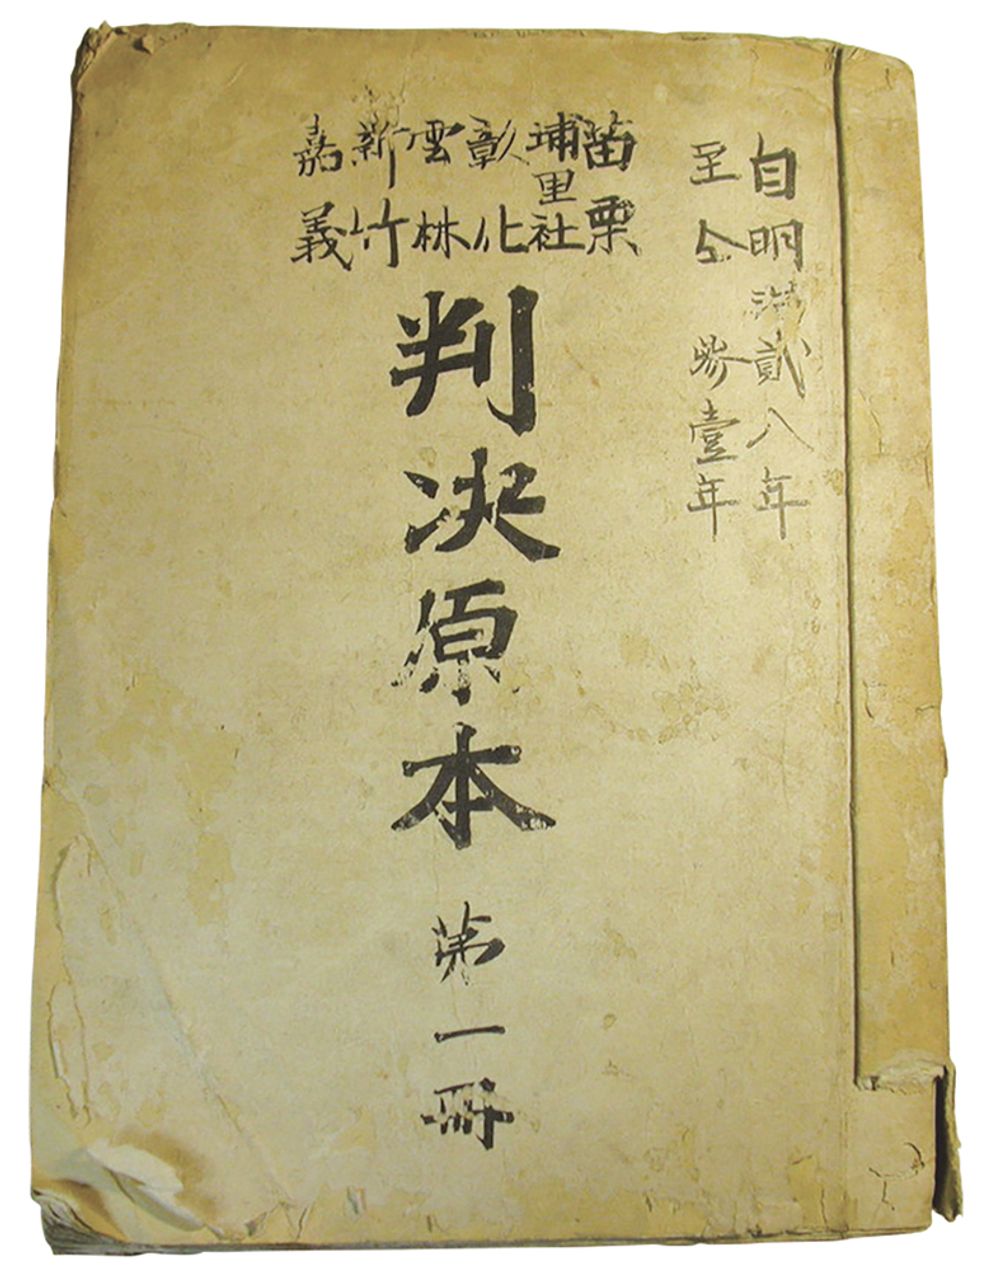 自明治貳八年
至仝參壹年
苗栗
埔里社
彰化
雲林
新竹
嘉義
判決原本
第一冊